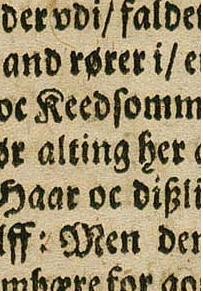 der vdi/ falder
and rører i/ e
oc Keedsomm
ør alting her
Haar oc dißli
lff: Men den
mbære for